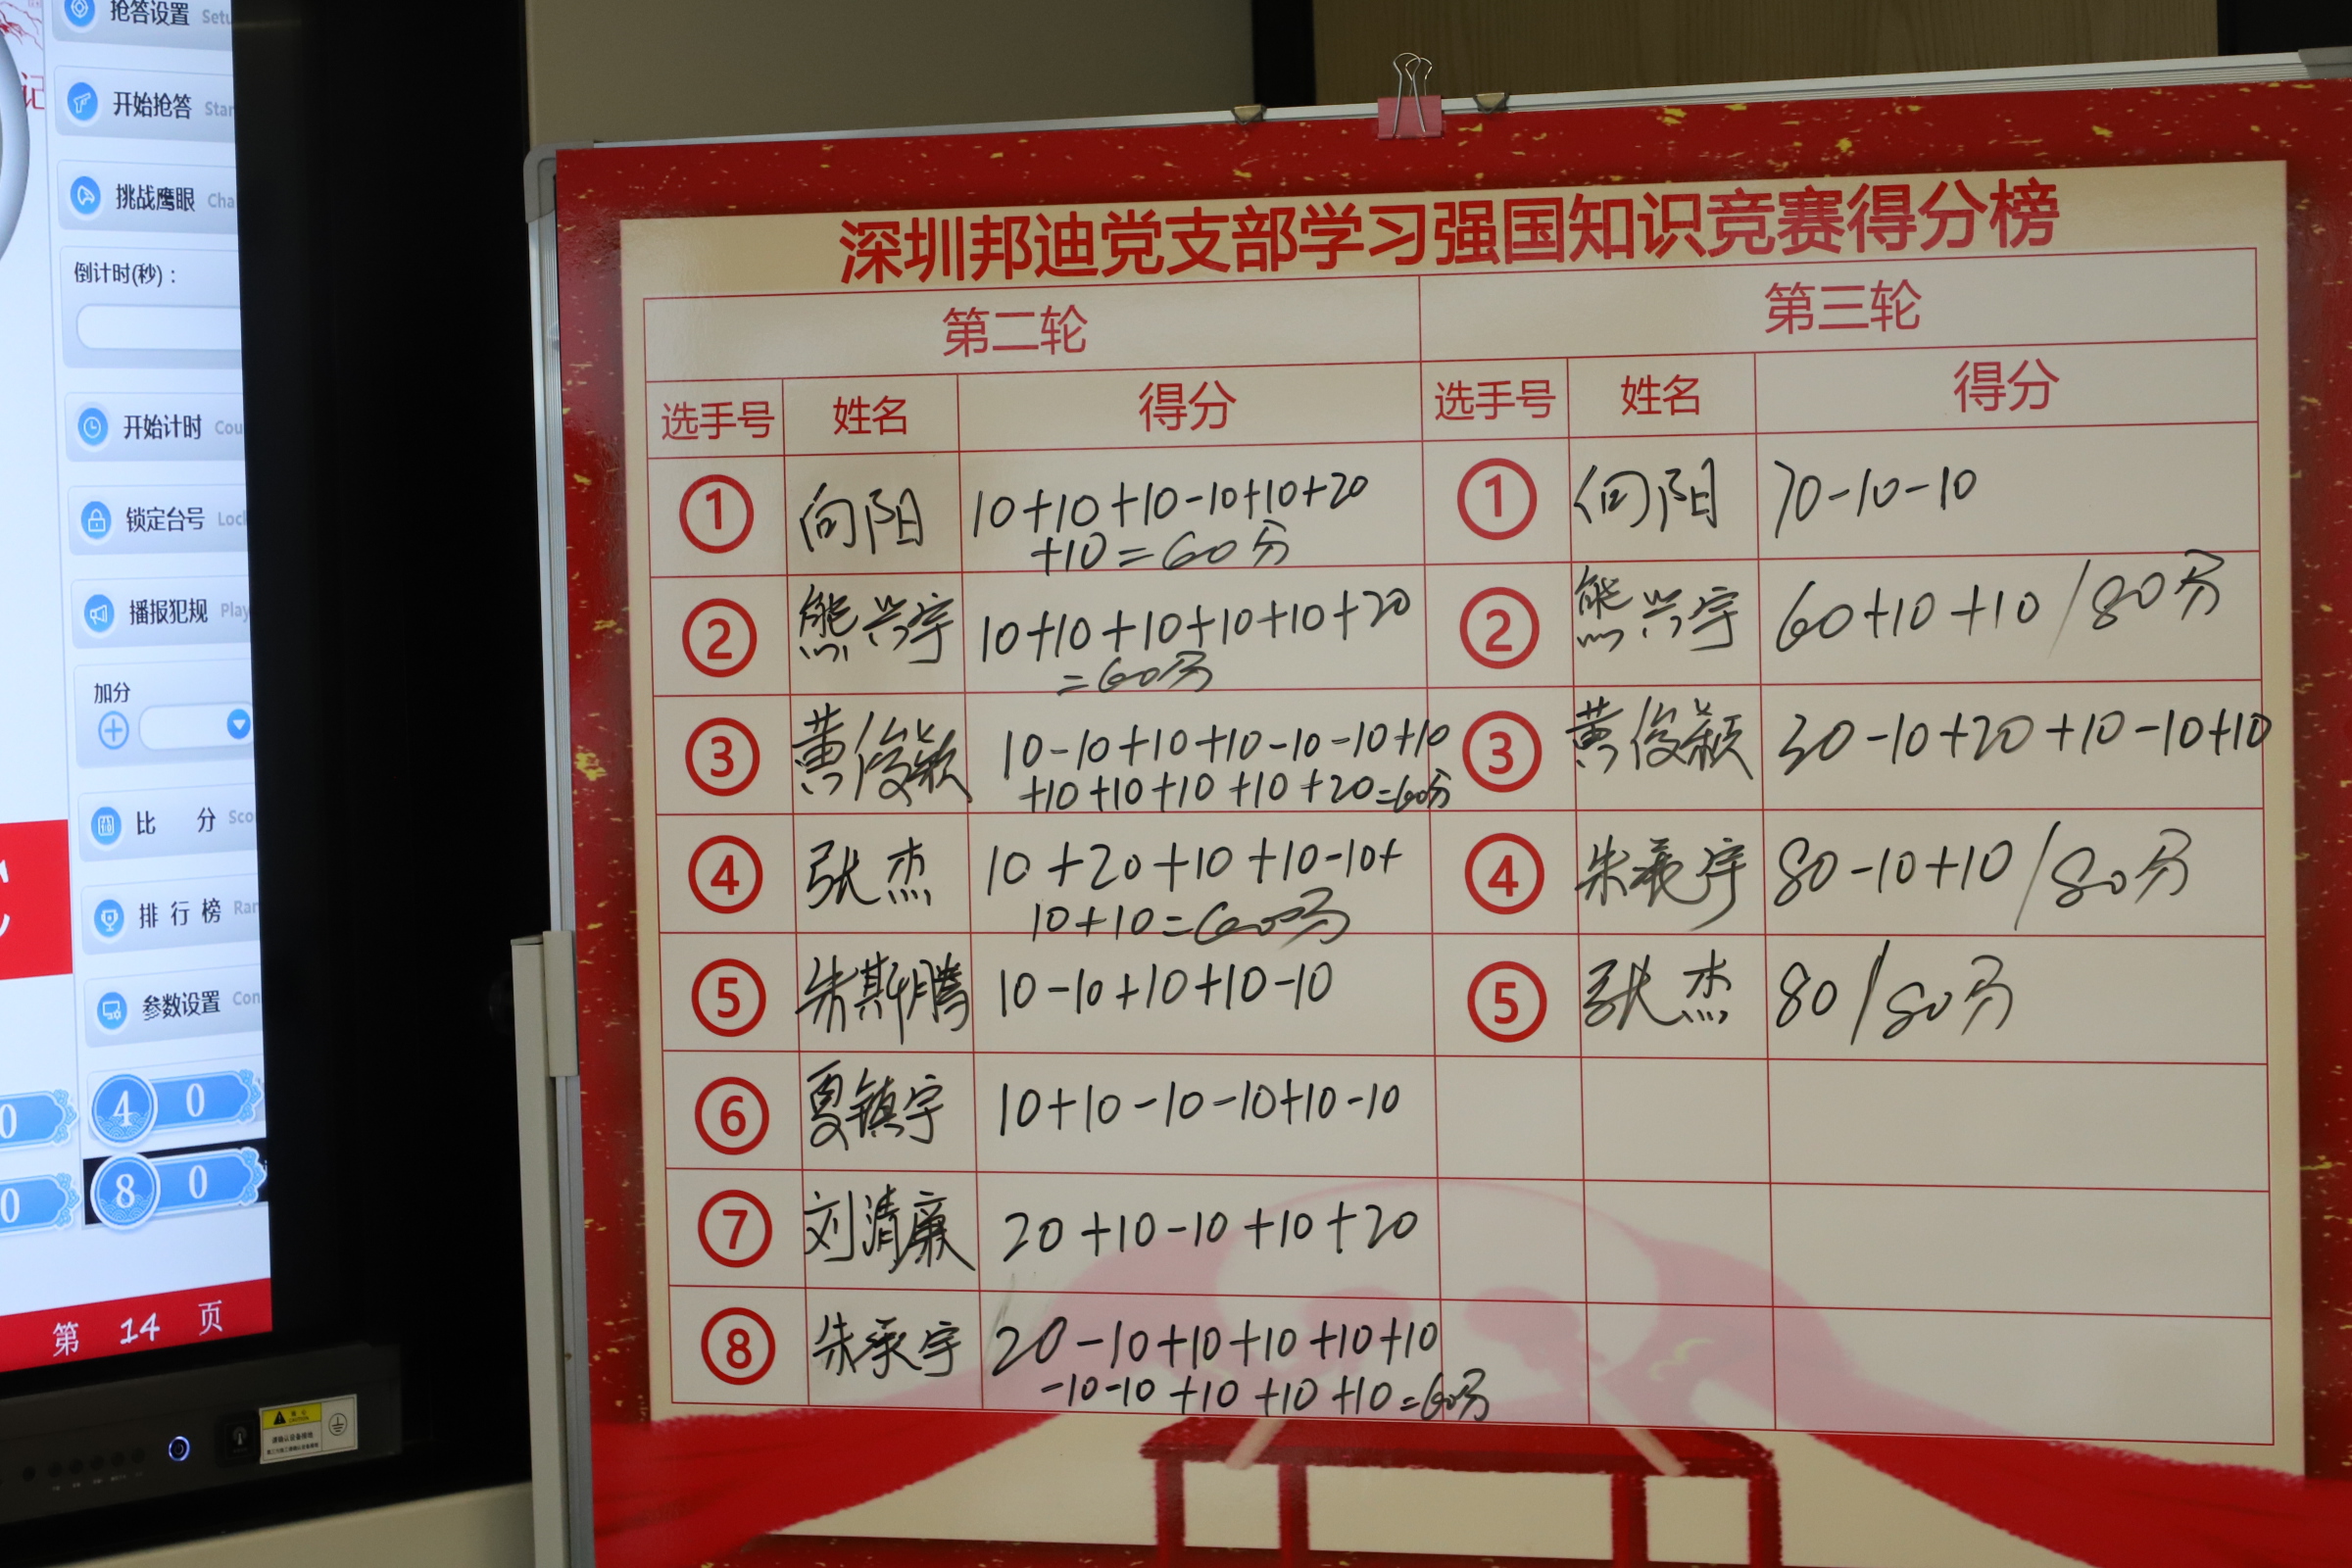 抢答设置 Setu
开始抢答 Star
挑战鹰眼 Cha
倒计时(秒)：
开始计时 Cou
锁定台号 Loc
播报犯规 Play
加分
比 分 Sco
排 行 榜 Ran
参数设置 Con
0 4 0
0 8 0
第 14 页
CAUTION
深圳邦迪党支部学习强国知识竞赛得分榜
第二轮 第三轮
选手号 姓名 得分 选手号 姓名 得分
① 向阳 10+10+10-10+10+20
+10=60分
① 向阳 70-10-10
② 熊兴宇 10+10+10+10+10+20
=60分
② 熊兴宇 60+10+10/80分
③ 黄俊颖 10-10+10+10-10-10+10
+10+10+10+10+20=60分
③ 黄俊颖 30-10+20+10-10+10
④ 张杰 10+20+10+10-10+
10+10=60分
④ 朱承宇 80-10+10/80分
⑤ 朱斯腾 10-10+10+10-10
⑤ 张杰 80/80分
⑥ 夏镇宇 10+10-10-10+10-10
⑦ 刘清廉 20+10-10+10+20
⑧ 朱承宇 20-10+10+10+10+10
-10-10+10+10+10=60分